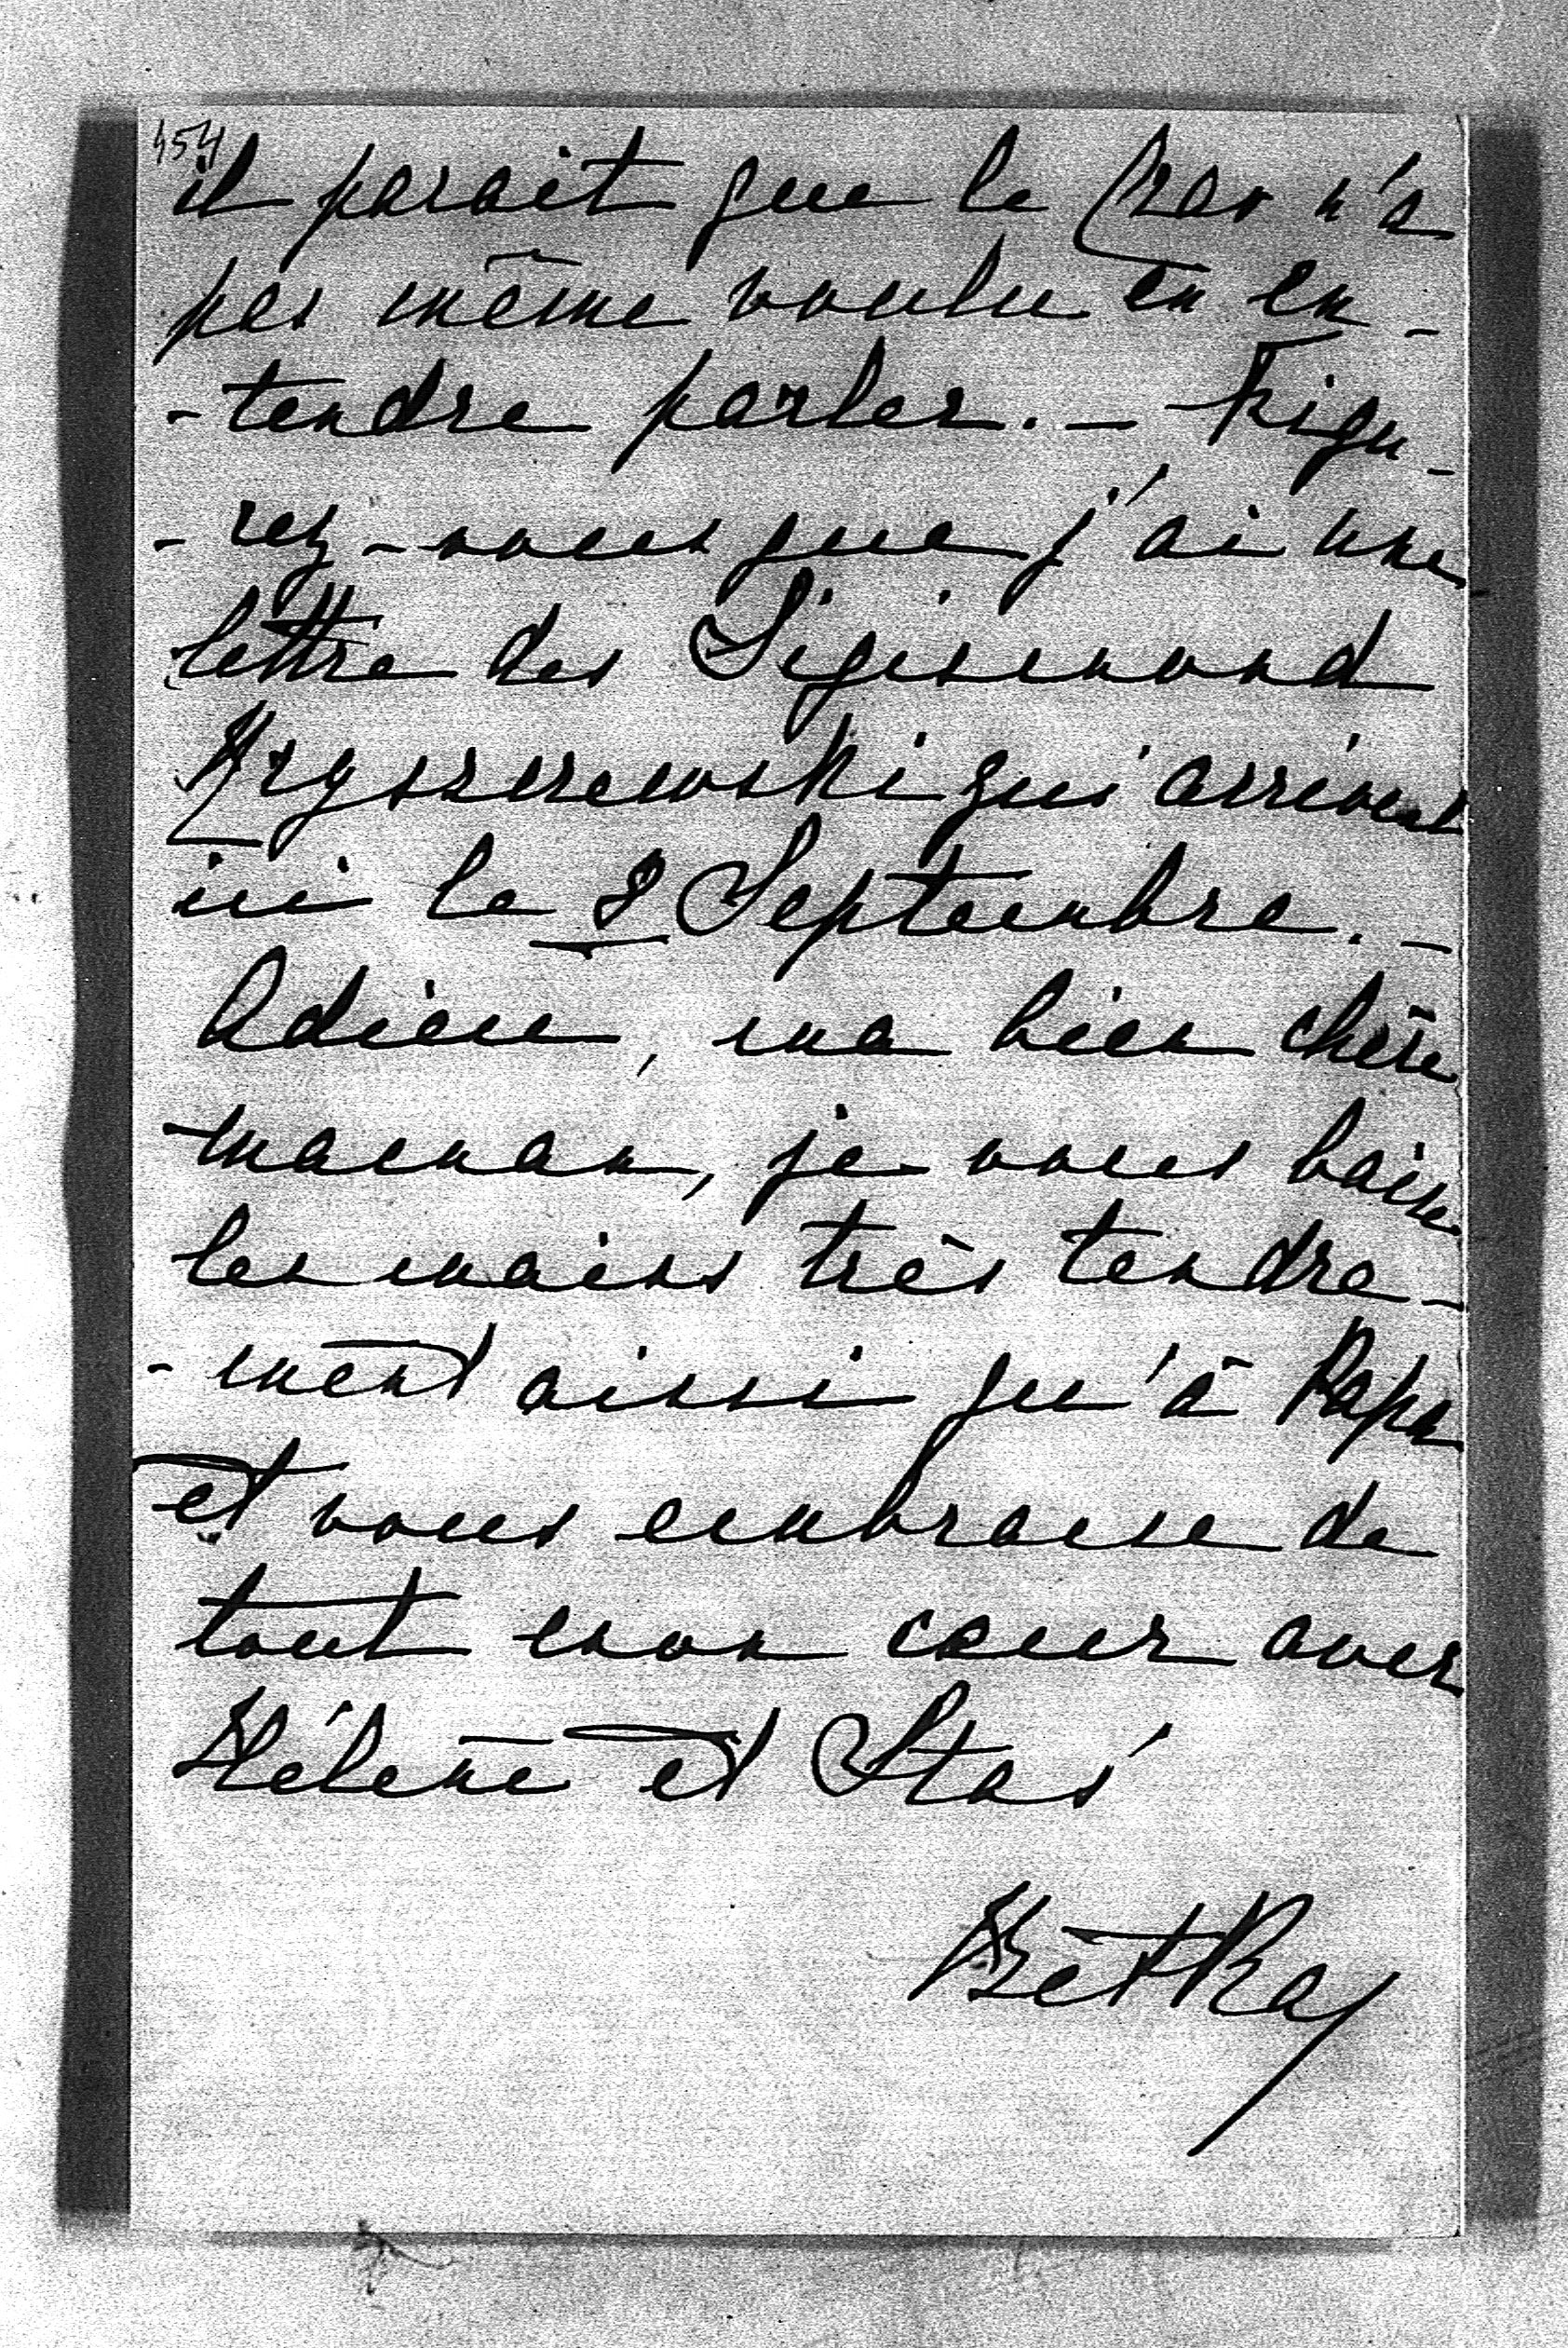 454
il parait que le Czar n'a
pas même voulu en en-
-tendre parler. — Figu-
-rez-vous que j'ai une
lettre des Sigismond
Kryszczewski qui arrivent
ici le 8 Septembre. —
Adieu, ma bien chère
maman, je vous baise
les mains très tendre-
-ment ainsi qu'à Papa
et vous embrasse de
tout mon cœur avec
Hélène et Staś
Betka